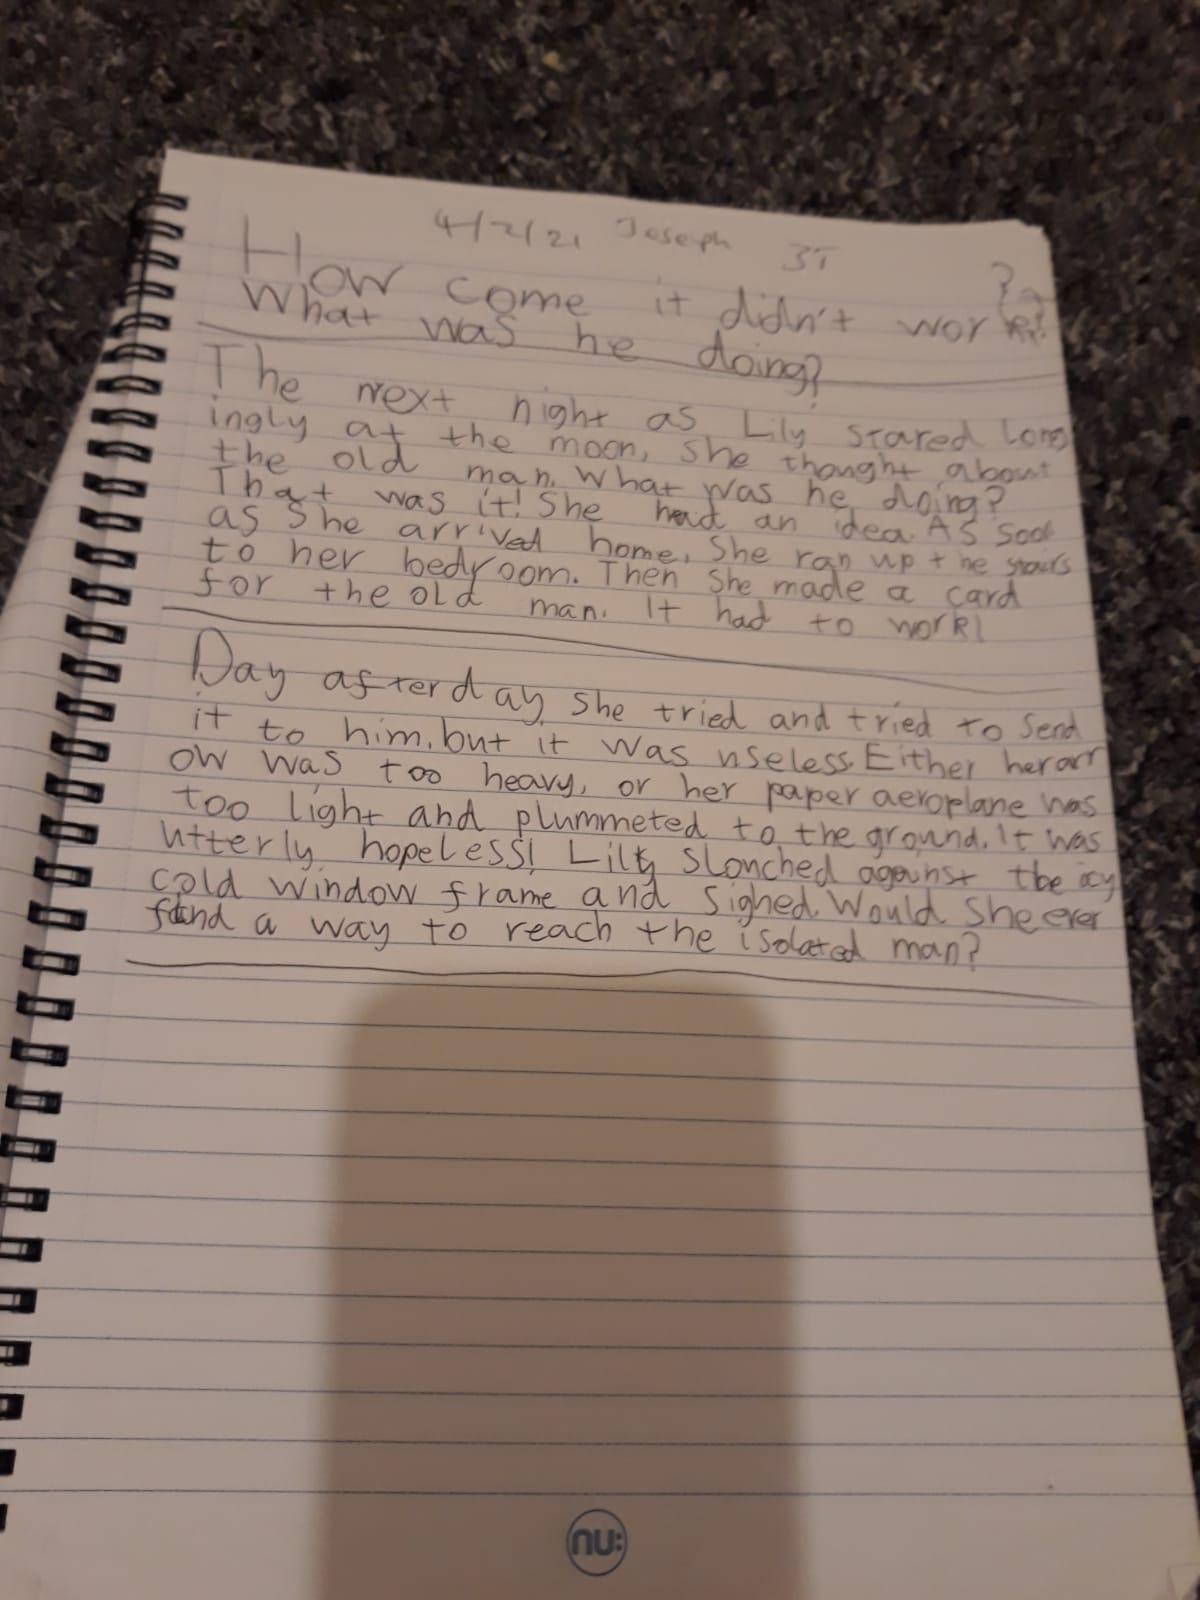 4/2/21 Joseph 3T
How come it didn't work?
What was he doing?
The next night as Lily stared long
ingly at the moon, she thought about
the old man. What was he doing?
That was it! She had an idea. As soon
as she arrived home, she ran up the stairs
to her bedroom. Then she made a card
for the old man. It had to work!
Day after day she tried and tried to send
it to him, but it was useless. Either her arr
ow was too heavy, or her paper aeroplane was
too light and plummeted to the ground. It was
utterly hopeless! Lily slouched against the icy
cold window frame and sighed. Would she ever
find a way to reach the isolated man?
nu: